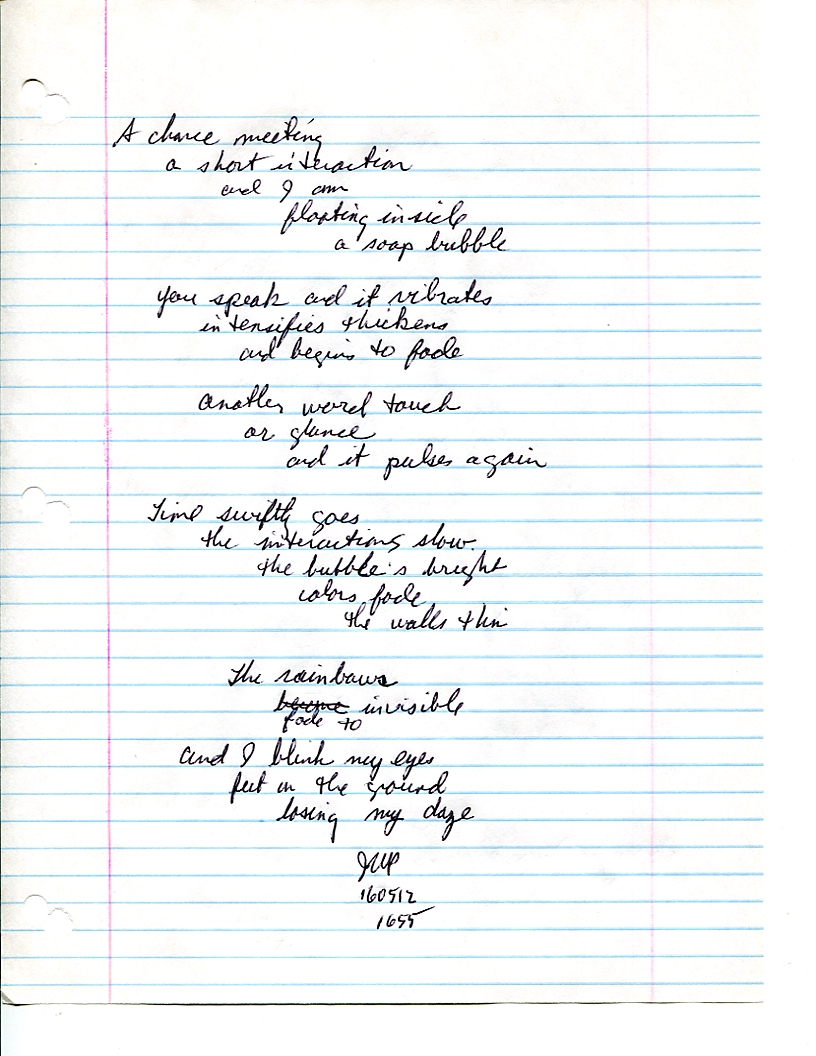 A chance meeting
a short interaction
and I am
floating inside
a soap bubble
you speak and it vibrates
intensifies thickens
and begins to fade
another word touch
or glance
and it pulses again
Time swiftly goes
the interactions slow.
the bubble's bright
colors fade
the walls thin
The rainbows
become invisible
fade to
and I blink my eyes
feet on the ground
losing my daze
160512
1655